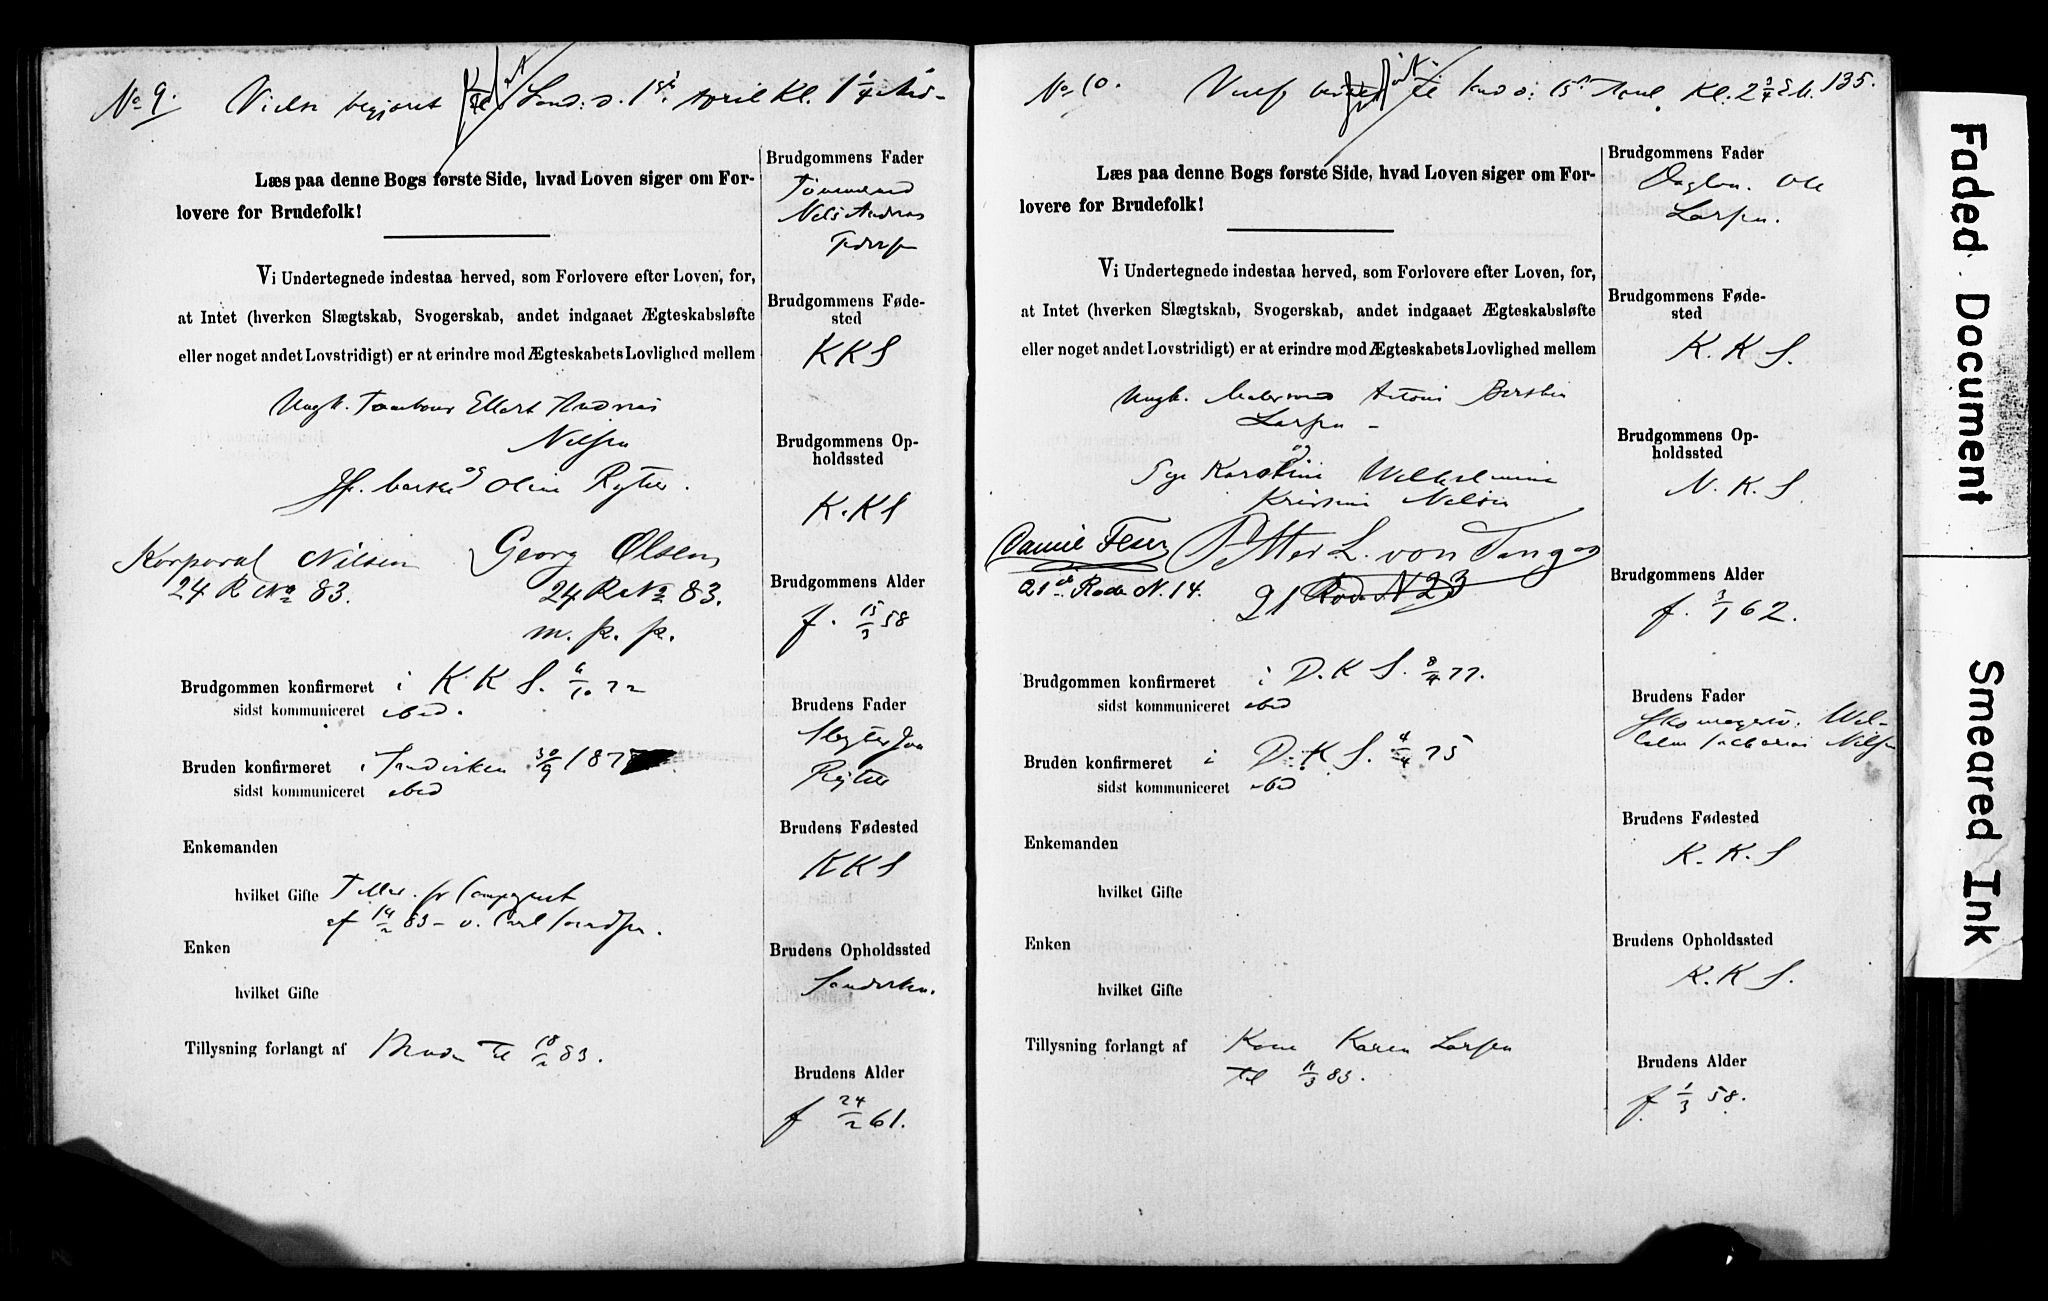 No 9. Vielse begjæret til Sønd: d. 1st April Kl. 1 1/4
Læs paa denne Bogs første Side, hvad Loven siger om For-
lovere for Brudefolk!
Vi Undertegnede indestaa herved, som Forlovere efter Loven, for,
at Intet (hverken Slægtskab, Svogerskab, andet indgaaet Ægteskabsløfte
eller noget andet Lovstridigt) er at erindre mod Ægteskabets Lovlighed mellem
Ungk. Tambour Ellert Andreas
Nilsen
og
Oline Rytter.
Korporal Nilsen Georg Olsen
24 R No 83. 24 R No 83.
m. p. p.
Brudgommen konfirmeret i K. K S. 6/10 72
sidst kommuniceret ibid.
Bruden konfirmeret i Sandviken 30/9 187
sidst kommuniceret ibid
Enkemanden
hvilket Gifte Tillad. fr Compagniet
af 14/2 83 - v. Carl
Enken
hvilket Gifte
Tillysning forlangt af Bruden til 18/2 83.
Brudgommens Fader
Tømmermand
Nils Andreas
Pedersen
Brudgommens Føde-
sted
K K S
Brudgommens Op-
holdssted
K. K S
Brudgommens Alder
f. 15/3 58
Brudens Fader
Rytter
Brudens Fødested
K K S
Brudens Opholdssted
Sandviken.
Brudens Alder
f 24/2 61.
No 10. til Sønd: 15d April. Kl. 2 3/4 135.
Læs paa denne Bogs første Side, hvad Loven siger om For-
lovere for Brudefolk!
Vi Undertegnede indestaa herved, som Forlovere efter Loven, for,
at Intet (hverken Slægtskab, Svogerskab, andet indgaaet Ægteskabsløfte
eller noget andet Lovstridigt) er at erindre mod Ægteskabets Lovlighed mellem
Ungk. Malersvend Antoni
Larsen -
og
Pige Karoline Wilhelmine
Kristine Nilsen
Petter L. von Tangen
21de Rode N. 14. 21 Rode N 23
Brudgommen konfirmeret i D. K S. 8/4 77.
sidst kommuniceret ibid
Bruden konfirmeret i D. K S. 4/4 75
sidst kommuniceret ibid
Enkemanden
hvilket Gifte
Enken
hvilket Gifte
Tillysning forlangt af Kone Karen Larsen
til 11/3 83.
Brudgommens Fader
Dagløn. Ole
Larsen.
Brudgommens Føde-
sted
K. K S.
Brudgommens Op-
holdssted
N. K. S
Brudgommens Alder
f. 3/1 62.
Brudens Fader
Skomagersv. Wil-
helm Zacharias Nilsen
Brudens Fødested
K. K. S
Brudens Opholdssted
K. K S.
Brudens Alder
f 1/3 58.
Faded Document
Smeared Ink